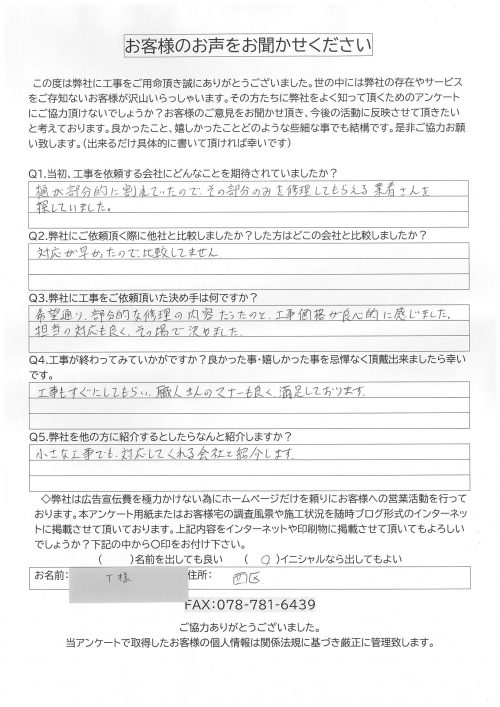 お客様のお声をお聞かせください
この度は弊社に工事をご用命頂き誠にありがとうございました。世の中には弊社の存在やサービス
をご存知ないお客様が沢山いらっしゃいます。その方たちに弊社をよく知って頂くためのアンケート
にご協力頂けないでしょうか？お客様のご意見をお聞かせ頂き、今後の活動に反映させて頂きたい
と考えております。良かったこと、嬉しかったことどのような些細な事でも結構です。是非ご協力お願
い致します。（出来るだけ具体的に書いて頂ければ幸いです）
Q1.当初、工事を依頼する会社にどんなことを期待されていましたか？
樋が部分的に割れていたので、その部分のみを修理してもらえる業者さんを
探していました。
Q2.弊社にご依頼頂く際に他社と比較しましたか？した方はどこの会社と比較しましたか？
対応が早かったので比較してません
Q3.弊社に工事をご依頼頂いた決め手は何ですか？
希望通り、部分的な修理の内容だったのと、工事価格が良心的に感じました。
担当の対応も良く、その場で決めました。
Q4.工事が終わってみていかがですか？良かった事・嬉しかった事を忌憚なく頂戴出来ましたら幸い
です。
工事もすぐにしてもらい、職人さんのマナーも良く、満足しております。
Q5.弊社を他の方に紹介するとしたらなんと紹介しますか？
小さな工事でも、対応してくれる会社と紹介します
◇弊社は広告宣伝費を極力かけない為にホームページだけを頼りにお客様への営業活動を行って
おります。本アンケート用紙またはお客様宅の調査風景や施工状況を随時ブログ形式のインターネッ
トに掲載させて頂いております。上記内容をインターネットや印刷物に掲載させて頂いてもよろしい
でしょうか？下記の中から○印をお付け下さい。
（　　）名前を出しても良い　（ ○ ）イニシャルなら出してもよい
お名前： T様 住所： 西区
FAX：078-781-6439
ご協力ありがとうございました。
当アンケートで取得したお客様の個人情報は関係法規に基づき厳正に管理致します。